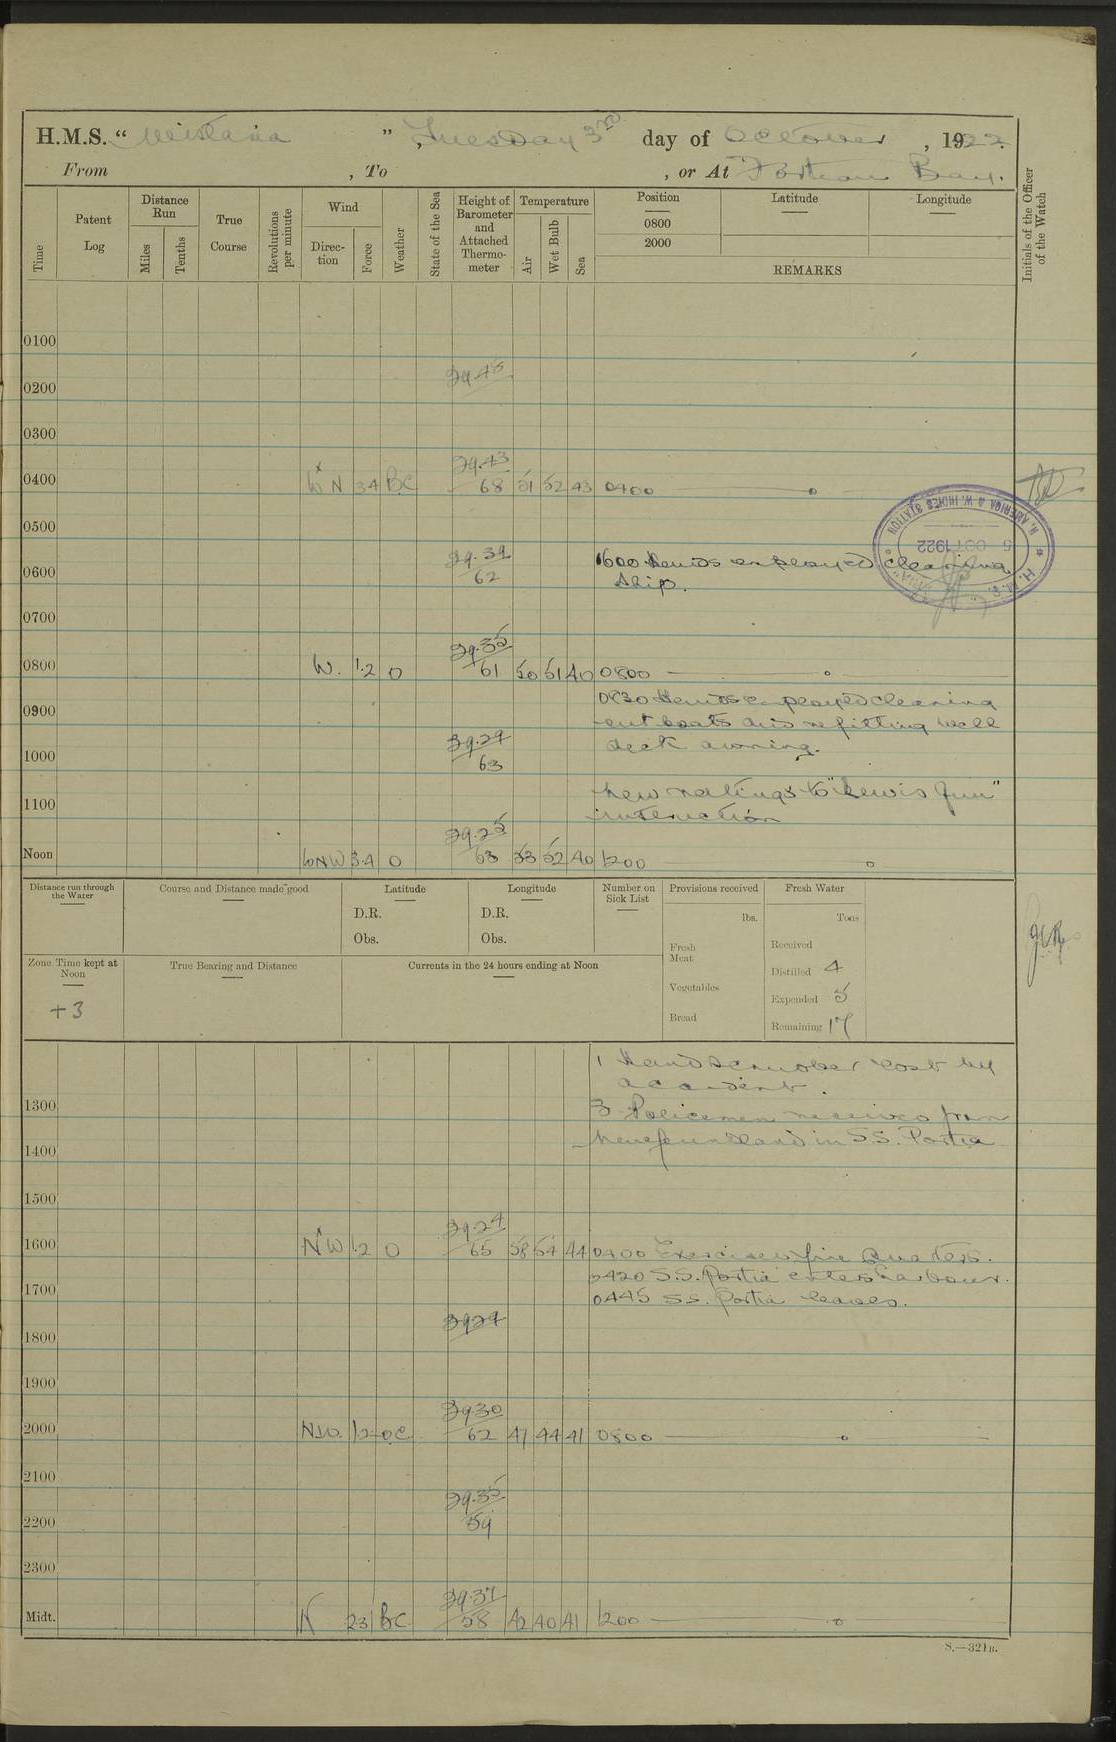 H.M.S. " Wistaria ", Tuesday 3rd day of October, 1922.
From , To , or At Forteau Bay.
Time
Patent Log
Distance Run
Miles
Tenths
True Course
Revolutions per minute
Wind
Direc-tion
Force
Weather
State of the Sea
Height of Barometer and Attached Thermo-meter
Temperature
Air
Wet Bulb
Sea
Position
0800
2000
Latitude
Longitude
REMARKS
Initials of the Officer of the Watch
0100
29.45
0200
0300
29.43
0400 W x N 3.4 BC 68 51 52 43 0400
0500
H.M.S.
5 OCT 1922
N. AMERICA & W. INDIES STATION
29.39
0600 62 0600 Hands employed cleaning
ship.
0700
29.35
0800 W. 1.2 O 61 50 51 40 0800
0830 Hands employed cleaning
0900 out boats and refitting well
29.29
deck awning.
1000 63
New ratings to "Lewis Gun"
1100 instruction
29.25
Noon WNW 3.4 O 63 53 52 40 1200
Distance run through the Water
Course and Distance made good
Latitude
D.R.
Obs.
Longitude
D.R.
Obs.
Number on Sick List
Provisions received
lbs.
Fresh Meat
Vegetables
Bread
Fresh Water
Tons
Received
Distilled 4
Expended 5
Remaining 17
Zone Time kept at Noon
+3
True Bearing and Distance
Currents in the 24 hours ending at Noon
1 Hand scrubber lost by
accident.
1300 3 Policemen received from
1400 Newfoundland in S.S. Portia
1500
29.24
1600 N x W 1.2 O 65 58 54 44 0400 Exercised fire Quarters.
0420 S.S. Portia enters harbour.
1700 0445 S.S. Portia leaves.
29.29
1800
1900
29.30
2000 N.W. 1.2 OC 62 47 44 41 0800
2100
29.35
2200 59
2300
29.37
Midt. N 2.3 BC 58 42 40 41 1200
S.—321B.